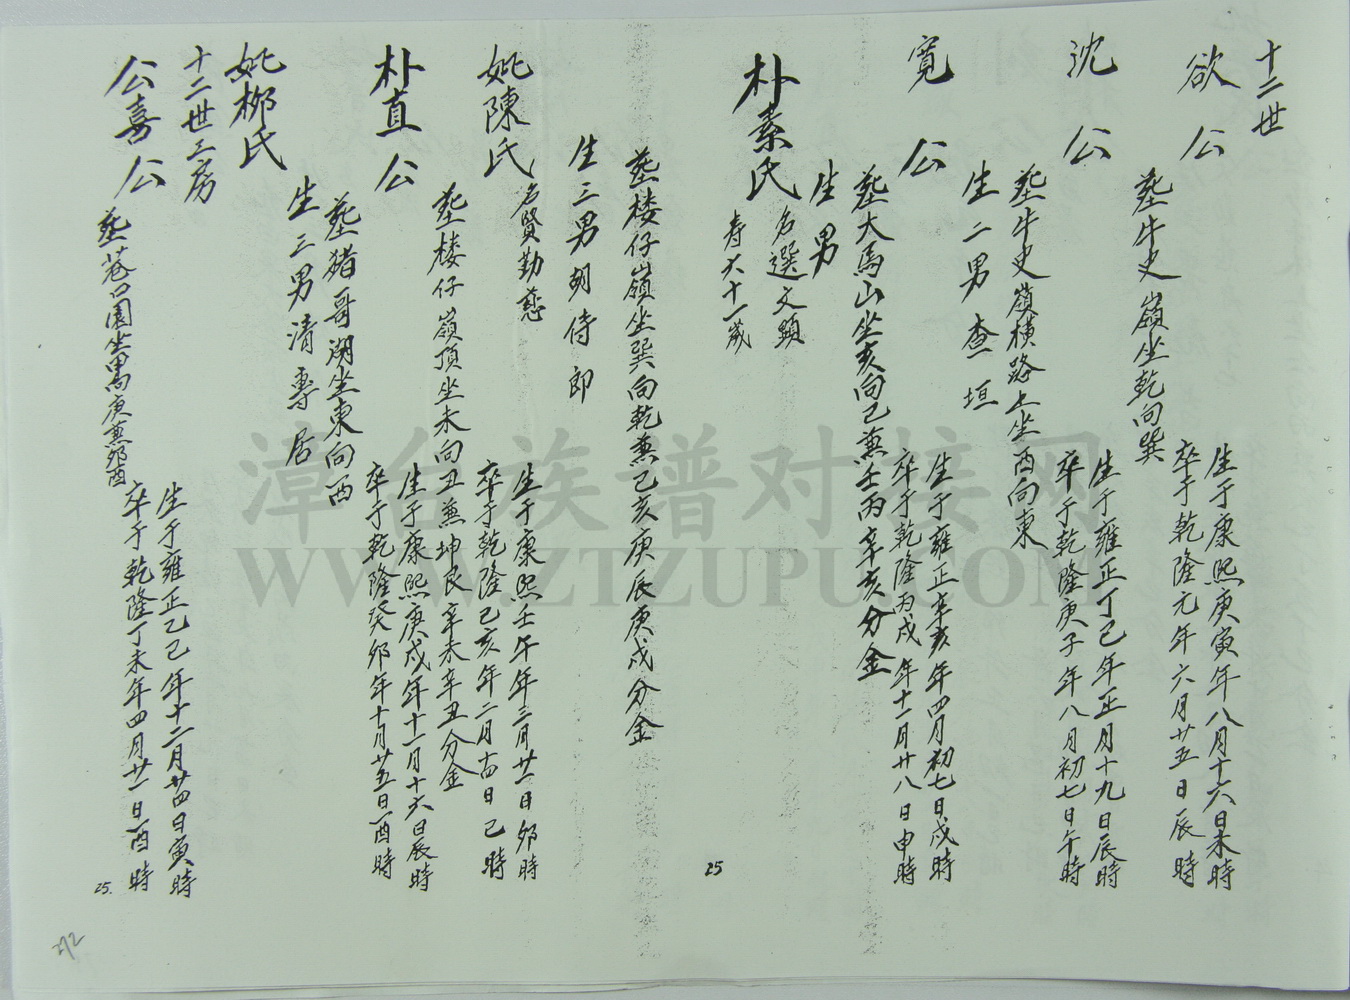 十二世
欲公
生于康熙庚寅年八月十六日未時
卒于乾隆元年六月廿五日辰時
塟牛史嶺坐乾向巽
沈公
生于雍正丁己年正月十九日辰時
卒于乾隆庚子年八月初七日午時
塟牛史嶺橫路上坐酉向東
生二男查垣
寬公
生于雍正辛亥年四月初七日戌時
卒于乾隆丙戌年十一月廿八日申時
塟大馬山坐亥向己兼壬丙辛亥分金
生男
朴素氏
名選文顕
寿六十一歲
25
塟楼仔嶺坐巽向乾兼己亥庚辰庚戌分金
生三男朝侍郎
妣陳氏
名賢勤慈
生于康熙壬午年三月廿一日夘時
卒于乾隆己亥年二月十四日己時
塟楼仔嶺頂坐未向丑兼坤艮辛未辛丑分金
朴直公
生于康熙庚戌年十一月十六日辰時
卒于乾隆癸卯年十月廿五日酉時
塟猪哥湖坐東向西
生三男清專居
妣柳氏
十二世三房
公喜公
生于雍正乙己年十二月廿四日寅時
卒于乾隆丁未年四月廿一日酉時
塟巷口園坐甲庚兼夘酉
25.
272
漳台族谱对接网
WWW.ZTZUPU.COM